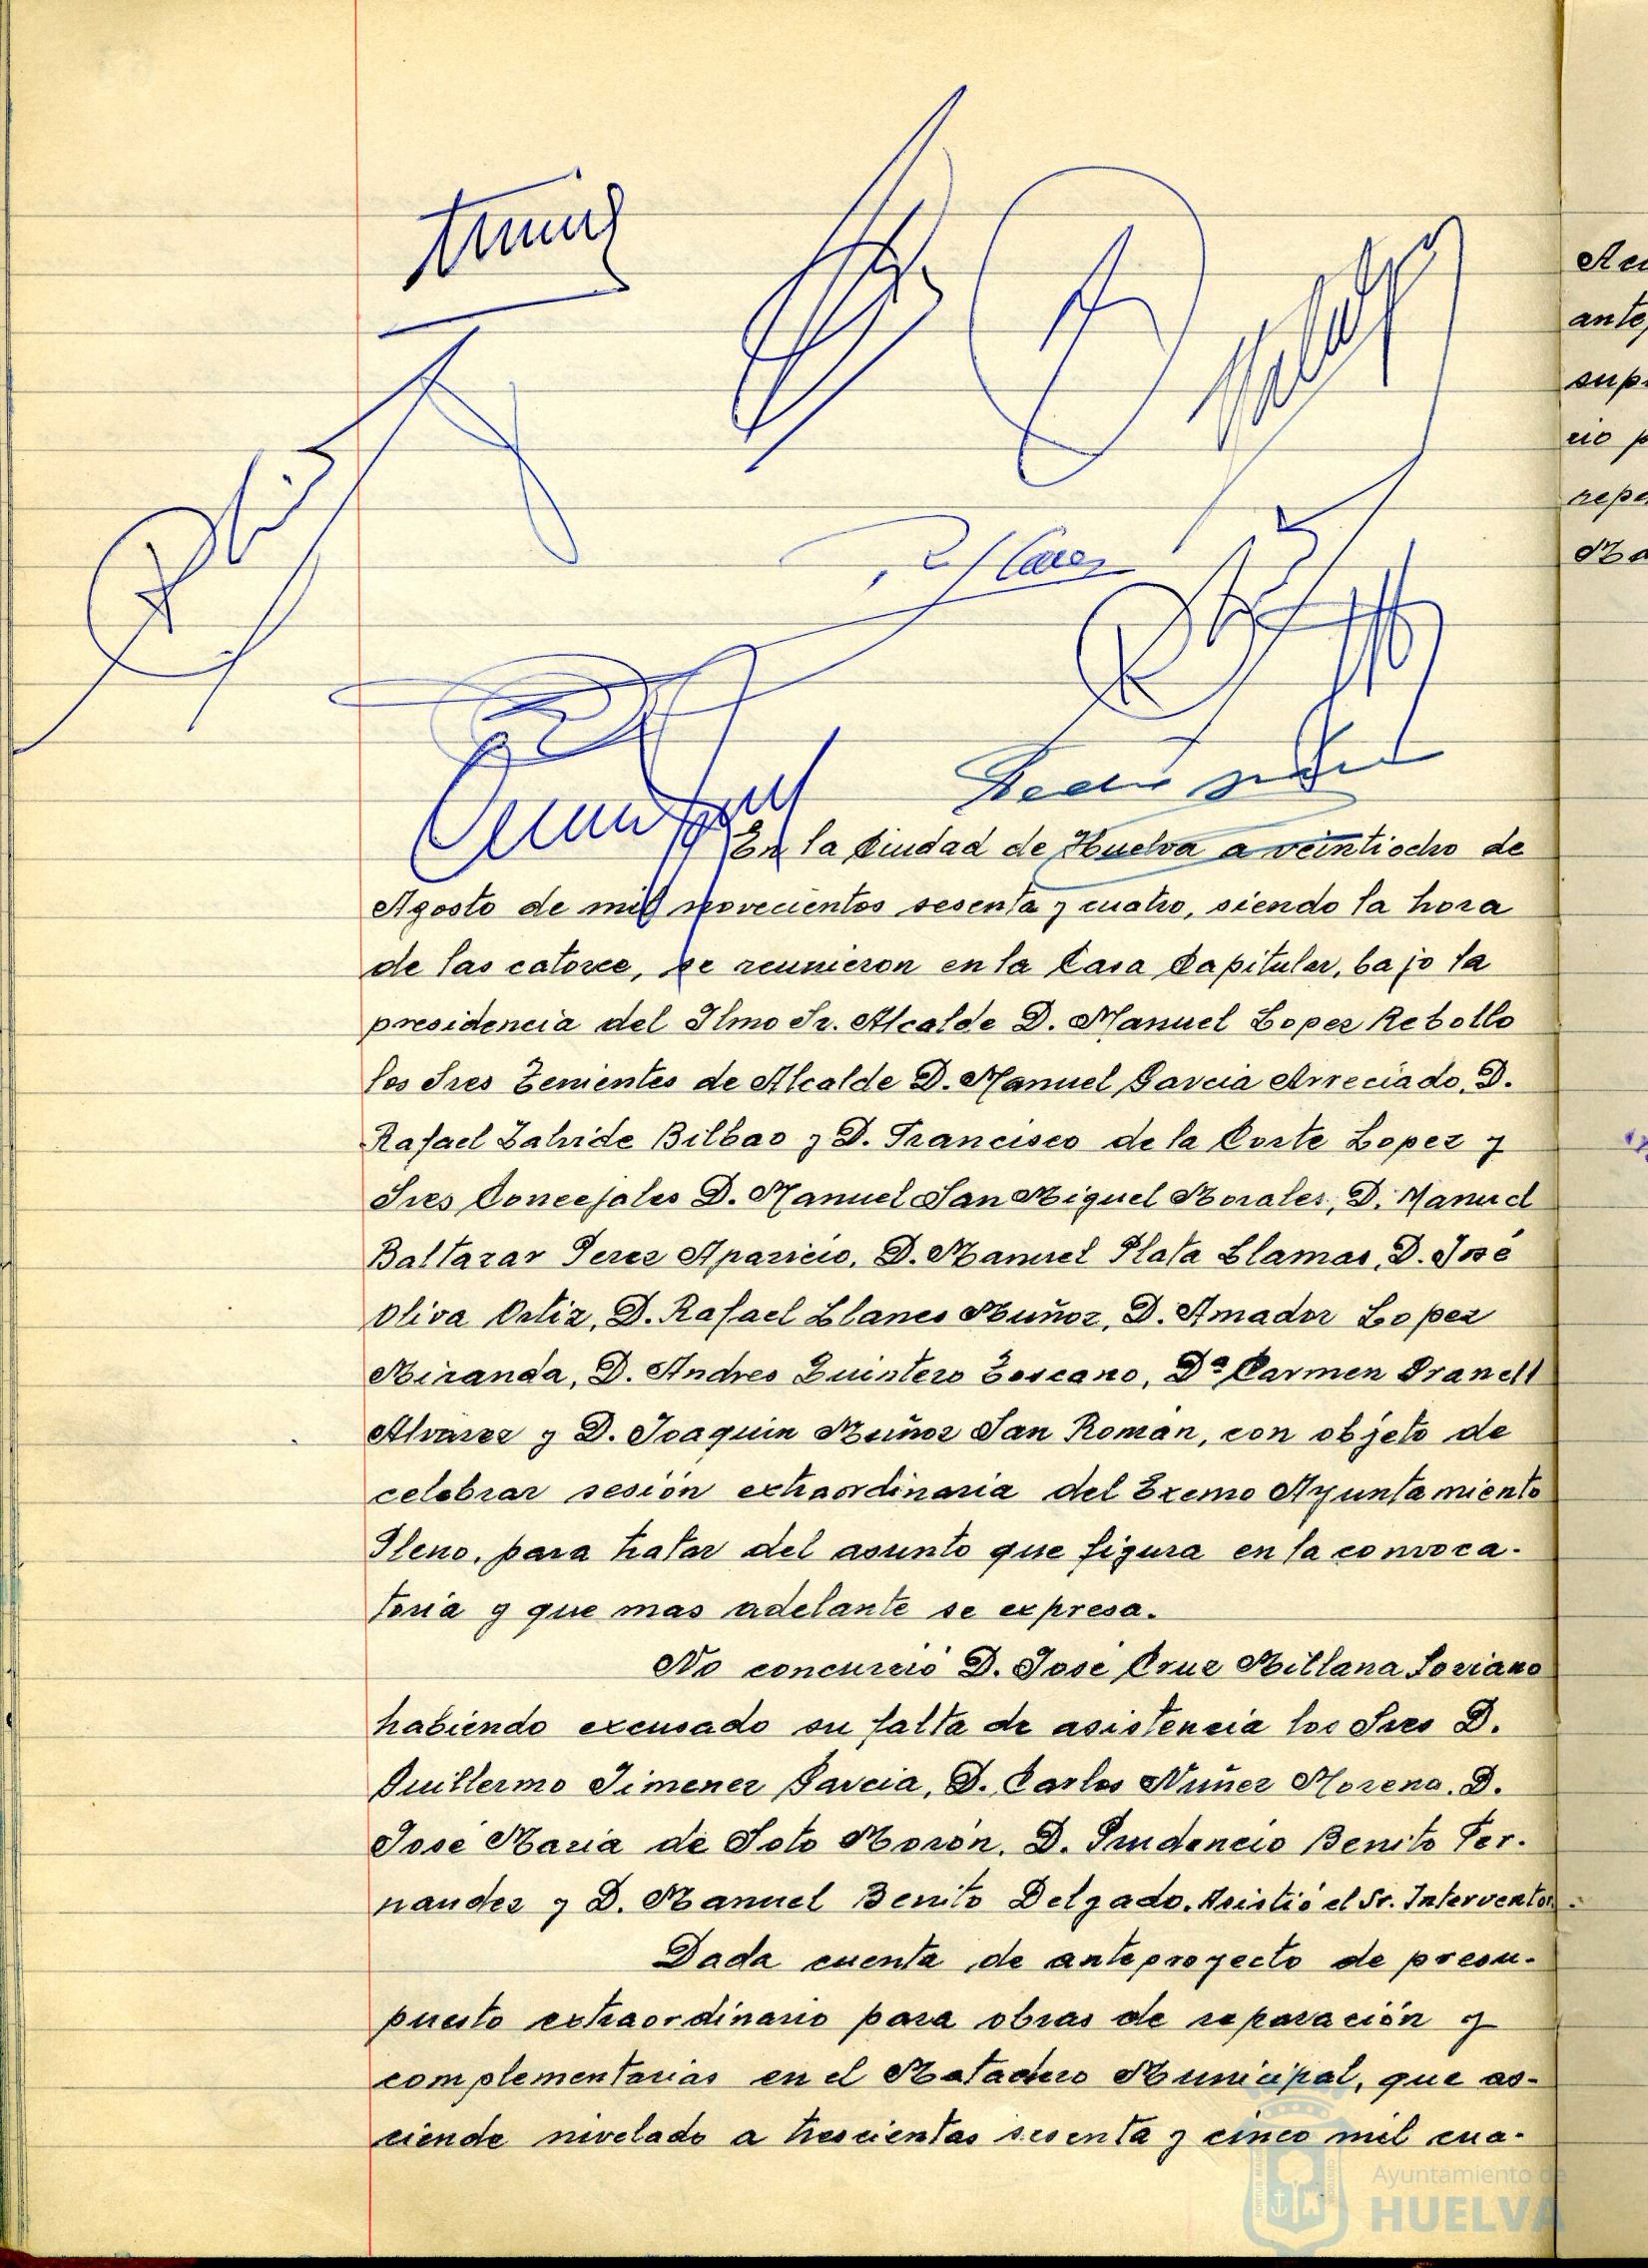 En la Ciudad de Huelva a veintiocho de
Agosto de mil novecientos sesenta y cuatro, siendo la hora
de las catorce, se reunieron en la Casa Capitular, bajo la
presidencia del Ilmo Sr. Alcalde D. Manuel Lopez Rebollo
los Sres Tenientes de Alcalde D. Manuel Garcia Arreciado, D.
Rafael Zalvide Bilbao y D. Francisco de la Corte Lopez y
Sres Concejales D. Manuel San Miguel Morales, D. Manuel
Baltazar Perez Aparicio, D. Manuel Plata Llamas, D. José
Oliva Ortiz, D. Rafael Llanes Muñoz, D. Amador Lopez
Miranda, D. Andres Quintero Toscano, Dª Carmen Pranell
Alvarez y D. Joaquin Muñoz San Roman, con objeto de
celebrar sesión extraordinaria del Excmo Ayuntamiento
Pleno, para tratar del asunto que figura en la convoca-
toria y que mas adelante se expresa.
No concurrió D. José Cruz Millana Soriano
habiendo excusado su falta de asistencia los Sres D.
Guillermo Jimenez Garcia, D. Carlos Nuñez Moreno, D.
José Maria de Soto Morón, D. Prudencio Benito Fer-
nandez y D. Manuel Benito Delgado. Asistió el Sr. Interventor.
Dada cuenta de anteproyecto de presu-
puesto extraordinario para obras de reparación y
complementarias en el Matadero Municipal, que as-
ciende nivelado a trescientas sesenta y cinco mil cua-
Ayuntamiento de
HUELVA